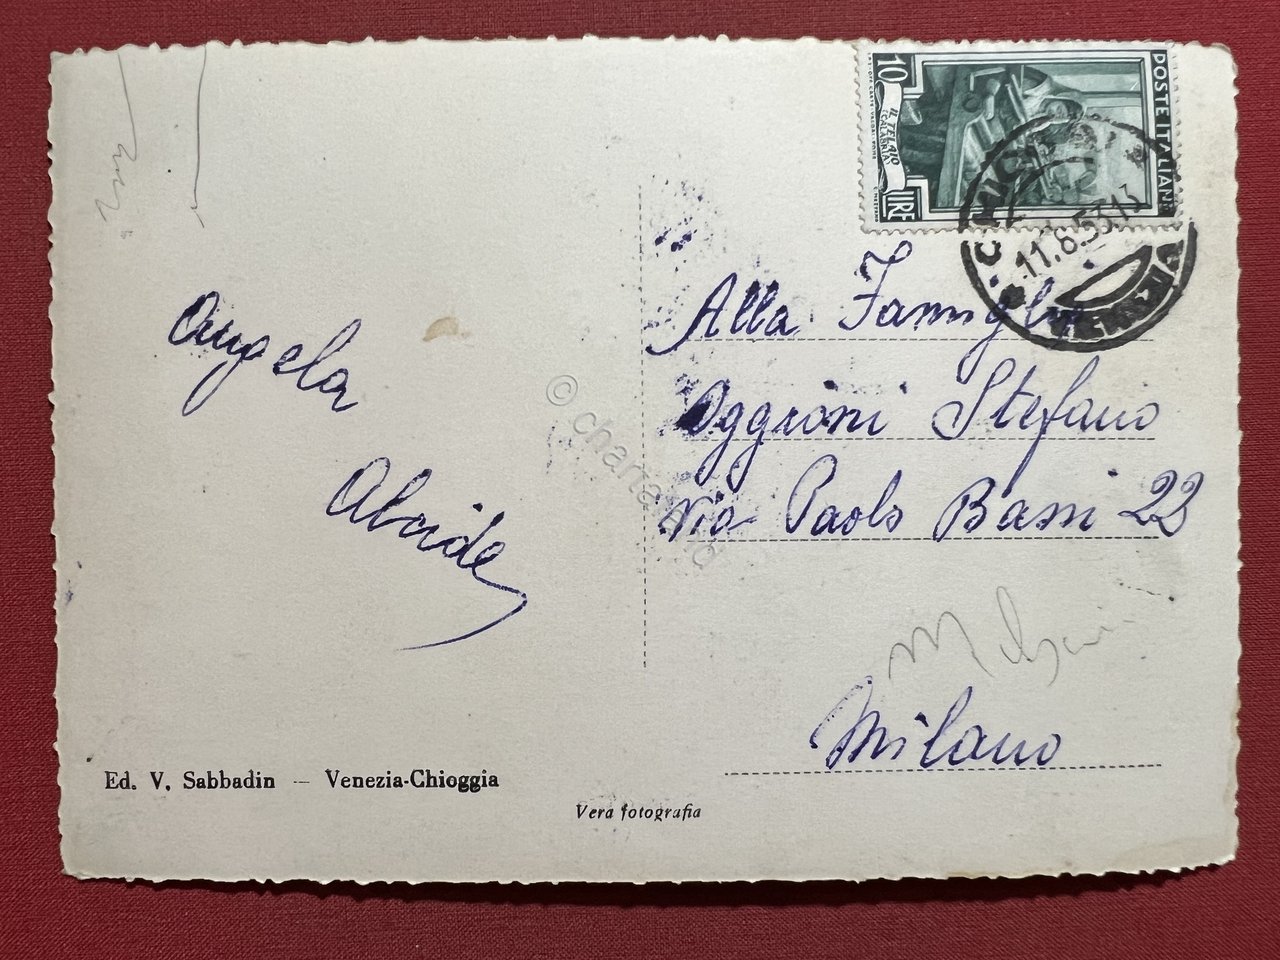 Angela
Alcide
Ed. V. Sabbadin — Venezia-Chioggia
Vera fotografia
10
IL TELAIO
(CALABRIA)
LIRE
POSTE ITALIANE
11.8.53.13
VENEZIA
Alla Famiglia
Oggioni Stefano
Via Paolo Bassi 22
Milano
© charta